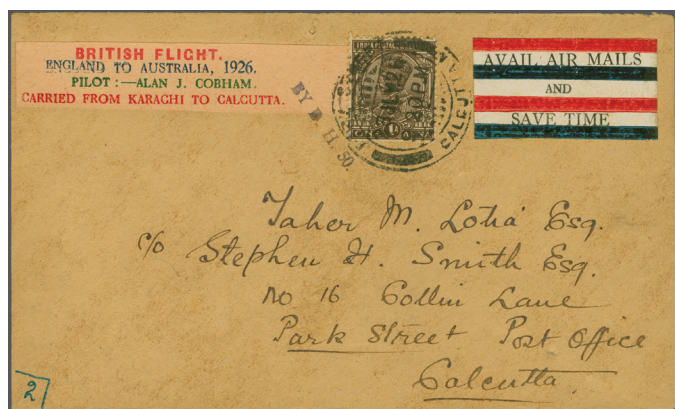 BRITISH FLIGHT.
ENGLAND TO AUSTRALIA, 1926.
PILOT :—ALAN J. COBHAM.
CARRIED FROM KARACHI TO CALCUTTA.
BY D. H. 50.
CALCUTTA
AVAIL AIR MAILS
AND
SAVE TIME
Taher M. Lotia Esq.
c/o Stephen H. Smith Esq.
No 16 Collin Lane
Park Street Post Office
Calcutta
2